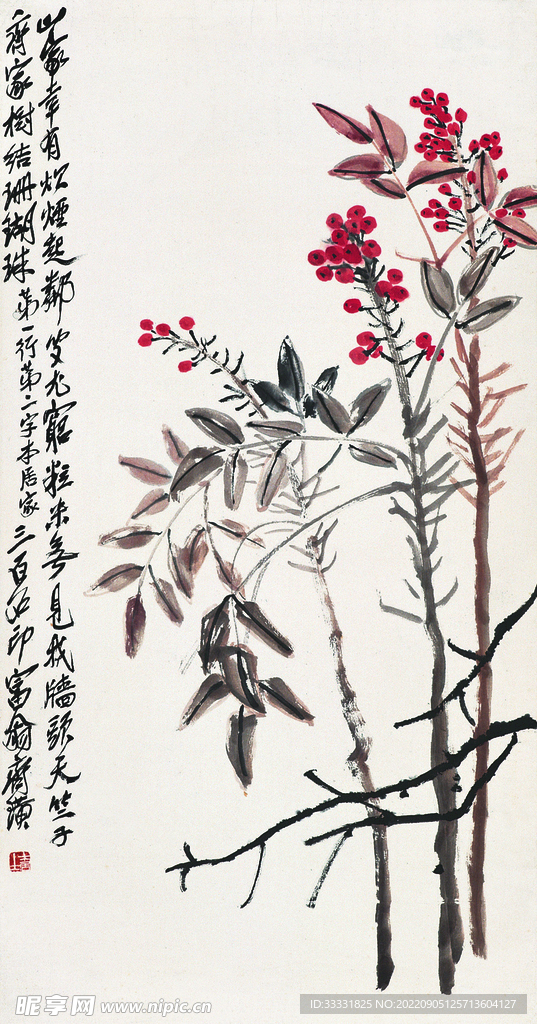 山家幸有炊煙起鄰叟尤窮粒米無見我牆頭天竺子
齊家樹結珊瑚珠 第一行第二字本居家 三百石印富翁齊璜
昵享网 www.nipic.cn
ID:33331825 NO:20220905125713604127